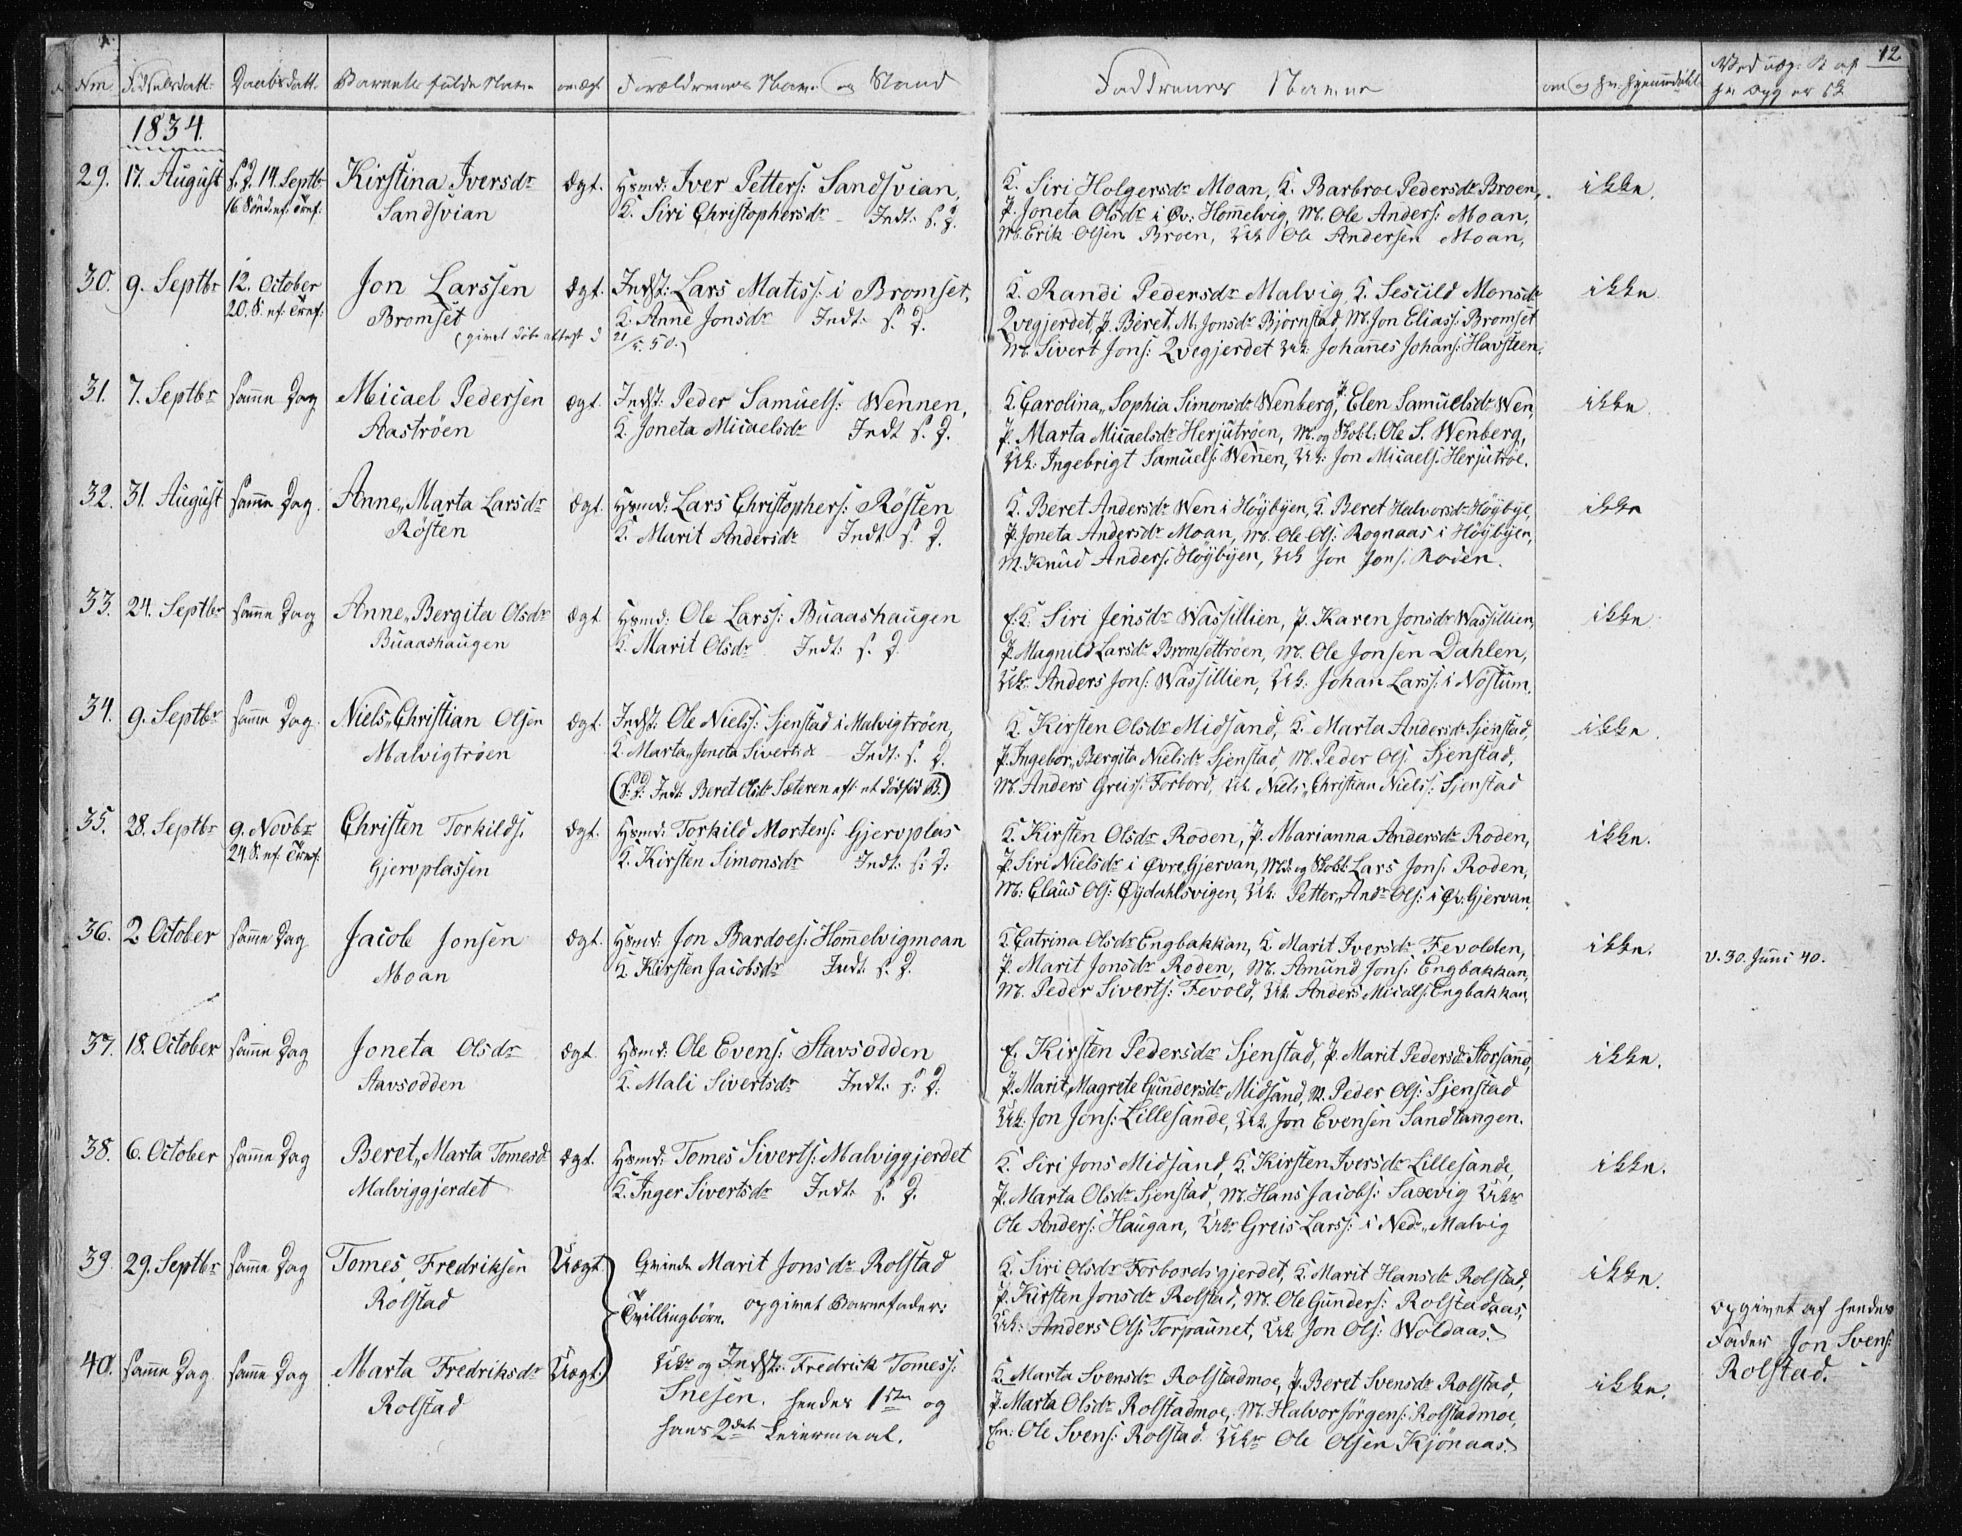 12
Nm Fødselsdatt: Daabsdatt. Barnets fulde Navn om ægt Forældrenes Navn og Stand Faddrenes Navne om og hv: hjemmedøbt Ved uæg: B af
1834.
29. 17. August s. D. 14. Septbr Kirstina Iversdr ægt. Hsmd: Iver Petters: Sandsvian, K. Siri Holgersdr Moan, K. Barbroe Pedersdr Broen, ikke.
16. Sønd: ef: Tref: Sandsvian K. Siri Christophersdr Indt: s. D. P. Joneta Olsdr i Øv: Hommelvig, M. Ole Anders: Moan,
M. Erik Olsen Broen, Uk Ole Andersen Moan,
30. 9. Septbr 12. October Jon Larssen ægt. Indst: Lars Matiss: i Bromset, K. Randi Pedersdr Malvig, K. Sescild Monsdr ikke
20. S. ef: Tref: Bromset K. Anne Jonsdr Indt: s. D. Qvegjerdet, P. Beret, M. Jonsdr Bjørnstad, M. Jon Eliass: Bromset
(givet døbeattest d 21/5. 50.) M. Sivert Jons: Qvegjerdet Uk: Johannes Johans: Havsteen.
31. 7. Septbr samme Dag Micael Pedersen ægt Indst: Peder Samuels: Wennen, K. Carolina,, Sophia Simonsdr Wenberg, P. Elen Samuelsdr Wen, ikke
Aastrøen K. Joneta Micaelsdr Indt s. D. P. Marta Micaelsdr Herjutrøen, M. og Skobl: Ole S. Wenberg,
Uk: Ingebrigt Samuels: Wennen, Uk: Jon Micaels: Herjutrøe.
32. 31. August samme Dag Anne,, Marta Larsdr ægt Hsmd: Lars Christophers: Røsten K. Beret Andersdr Wen i Høybyen, K. Beret Halvorsdr Høybye, ikke
Røsten K. Marit Andersdr Indt: s. D. P. Joneta Andersdr Moan, M. Ole Ols: Rognaas i Høybyen,
M. Knud Anders: Høybyen, Uk Jon Jons: Roden.
33. 24. Septbr samme Dag Anne,, Bergita Olsdr ægt Hsmd: Ole Larss: Buaashaugen E. K. Siri Jensdr Wassillien, P. Karen Jonsdr Wassillien, ikke
Buaashaugen K. Marit Olsdr Indt: s. D. P. Magnild Larsdr Bromsettrøen, M. Ole Jonsen Dahlen,
Uk: Anders Jons: Wassillien, Uk: Johan Larss: i Nøstum.
34. 9. Septbr samme Dag Niels,, Christian Olsen ægt Indst: Ole Nielss: Sjenstad i Malvigtrøen, K. Kirsten Olsdr Midsand, K. Marta Andersdr Sjenstad, ikke.
Malvigtrøen K. Marta,, Joneta Sivertsdr Indt: s. D. P. Ingebor,, Bergita Nielsdr Sjenstad, M. Peder Ols: Sjenstad,
(s. D. Indt: Beret Olsdr Sæteren eft: et dødfød B.) M. Anders Greiss: Forbord, Uk. Niels,, Christian Niels: Sjenstad
35. 28. Septbr 9. Novbr Christen Torkilds: ægt. Hsmd: Torkild Mortens: Gjervplas K. Kirsten Olsdr Roden, P. Marianna Andersdr Roden, ikke.
24 S. ef. Tref: Gjervplassen K. Kirsten Simonsdr Indt: s: D: P. Siri Nielsdr i Øvre Gjervan, M. og Skobl: Lars Jons: Roden,
M: Claus Ols: Øydahlsvigen, Uk: Petter,, Andr Ols: i Øv: Gjervan.
36. 2. October samme Dag Jacob Jonsen ægt Hsmd: Jon Bardoes: Hommelvigmoan K. Catrina Olsdr Engbakkan, K. Marit Iversdr Fevolden, ikke. v. 30. Juni 40.
Moan K. Kirsten Jacobsdr Indt: s. D. P. Marit Jonsdr Roden, M. Amund Jons: Engbakkan,
M. Peder Siverts: Fevold, Uk. Anders Micaels: Engbakkan,
37. 18. October samme Dag Joneta Olsdr ægt Hsmd: Ole Evens: Stavsodden E. Kirsten Pedersdr Sjenstad, P. Marit Pedersdr Storsand, ikke.
Stavsodden K. Mali Sivertsdr Indt: s: D. P. Marit,, Magrete Gundersdr Midsand, M. Peder Ols: Sjenstad
Uk: Jon Jons: Lillesande, Uk. Jon Evensen Sandtangen.
38. 6. October samme Dag Beret,, Marta Tomesd ægt. Hsmd: Tomes Siverts: Malviggjerdet K. Siri Jons Midsand, K. Kirsten Iversdr Lillesande, ikke.
Malviggjerdet K. Inger Sivertsdr Indt: s. D. P. Marta Olsdr Sjenstad, M. Hans Jacobs: Saxevig Uk
Ole Anders: Haugan, Uk: Greis Larss: i Ned,, Malvig
39. 29. Septbr samme Dag Tomes Fredriksen Uægt Qvinde Marit Jonsdr Rolstad K. Siri Olsdr Forbordsgjerdet, K. Marit Hansdr Rolstad, ikke.
Rolstad Tvillingbörn. opgivet Barnefader: P. Kirsten Jonsdr Rolstad, M. Ole Gunders: Rolstadaas, opgivet af hendes
Uk: Anders Ols: Torpaunet, Uk Jon Ols: Woldaas. Fader Jon Svens:
40. samme Dag samme Dag Marta Fredriksdr Uægt Uk og Indst: Fredrick Tomess: K Marta Svensdr Rolstadmoe, P. Beret Svensdr Rolstad, ikke. Rolstad.
Rolstad Snesen. hendes 1ste og P. Marta Olsdr Rolstadmoe, M. Halvor Jørgens: Rolstadmoe,
hans 2det Leiermaal. Em: Ole Svens: Rolstad. Uk Ole Olsen Kjønaas.